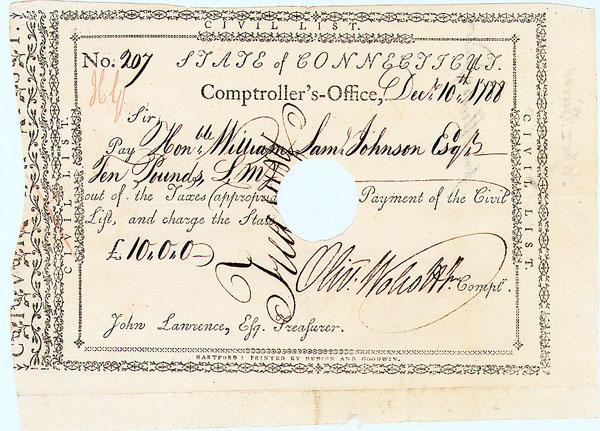 CIVIL LIST.
No. 207 STATE of CONNECTICUT.
Comptroller's-Office, Decr. 10th, 1788
Sir,
Pay Honble. William Saml. Johnson Esqr.
Ten Pounds, L.M.
out of the Taxes appropria Payment of the Civil
List, and charge the State
£10.0.0
Olivr. Wolcott Jr. Complr.
John Lawrence, Esq. Treasurer.
HARTFORD: PRINTED BY HUDSON AND GOODWIN.
CIVIL LIST.
CIVIL LIST.